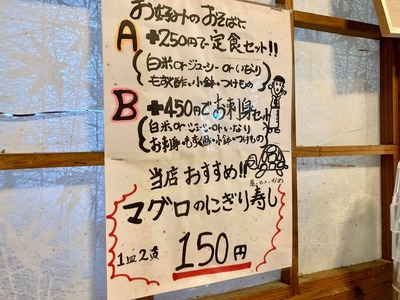 お好みのおそばに
A +250円で定食セット!!
(白米orジューシーorいなり
もずく酢・小鉢・つけもの)
B +450円でお刺身セット
(白米orジューシーorいなり
お刺身・もずく酢・小鉢・つけもの)
当店おすすめ!!
マグロのにぎり寿し
1皿2貫 150円